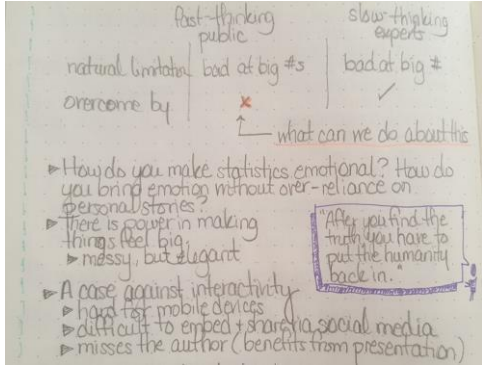 fast-thinking public
slow-thinking experts
natural limitation bad at big #s bad at big #
overcome by x ✓
what can we do about this
▸ How do you make statistics emotional? How do
you bring emotion without over-reliance on
personal stories?
▸ There is power in making
things feel big.
▸ messy, but elegant
"After you find the
truth, you have to
put the humanity
back in."
▸ A case against interactivity
▸ hard for mobile devices
▸ difficult to embed + share via social media
▸ misses the author (benefits from presentation)